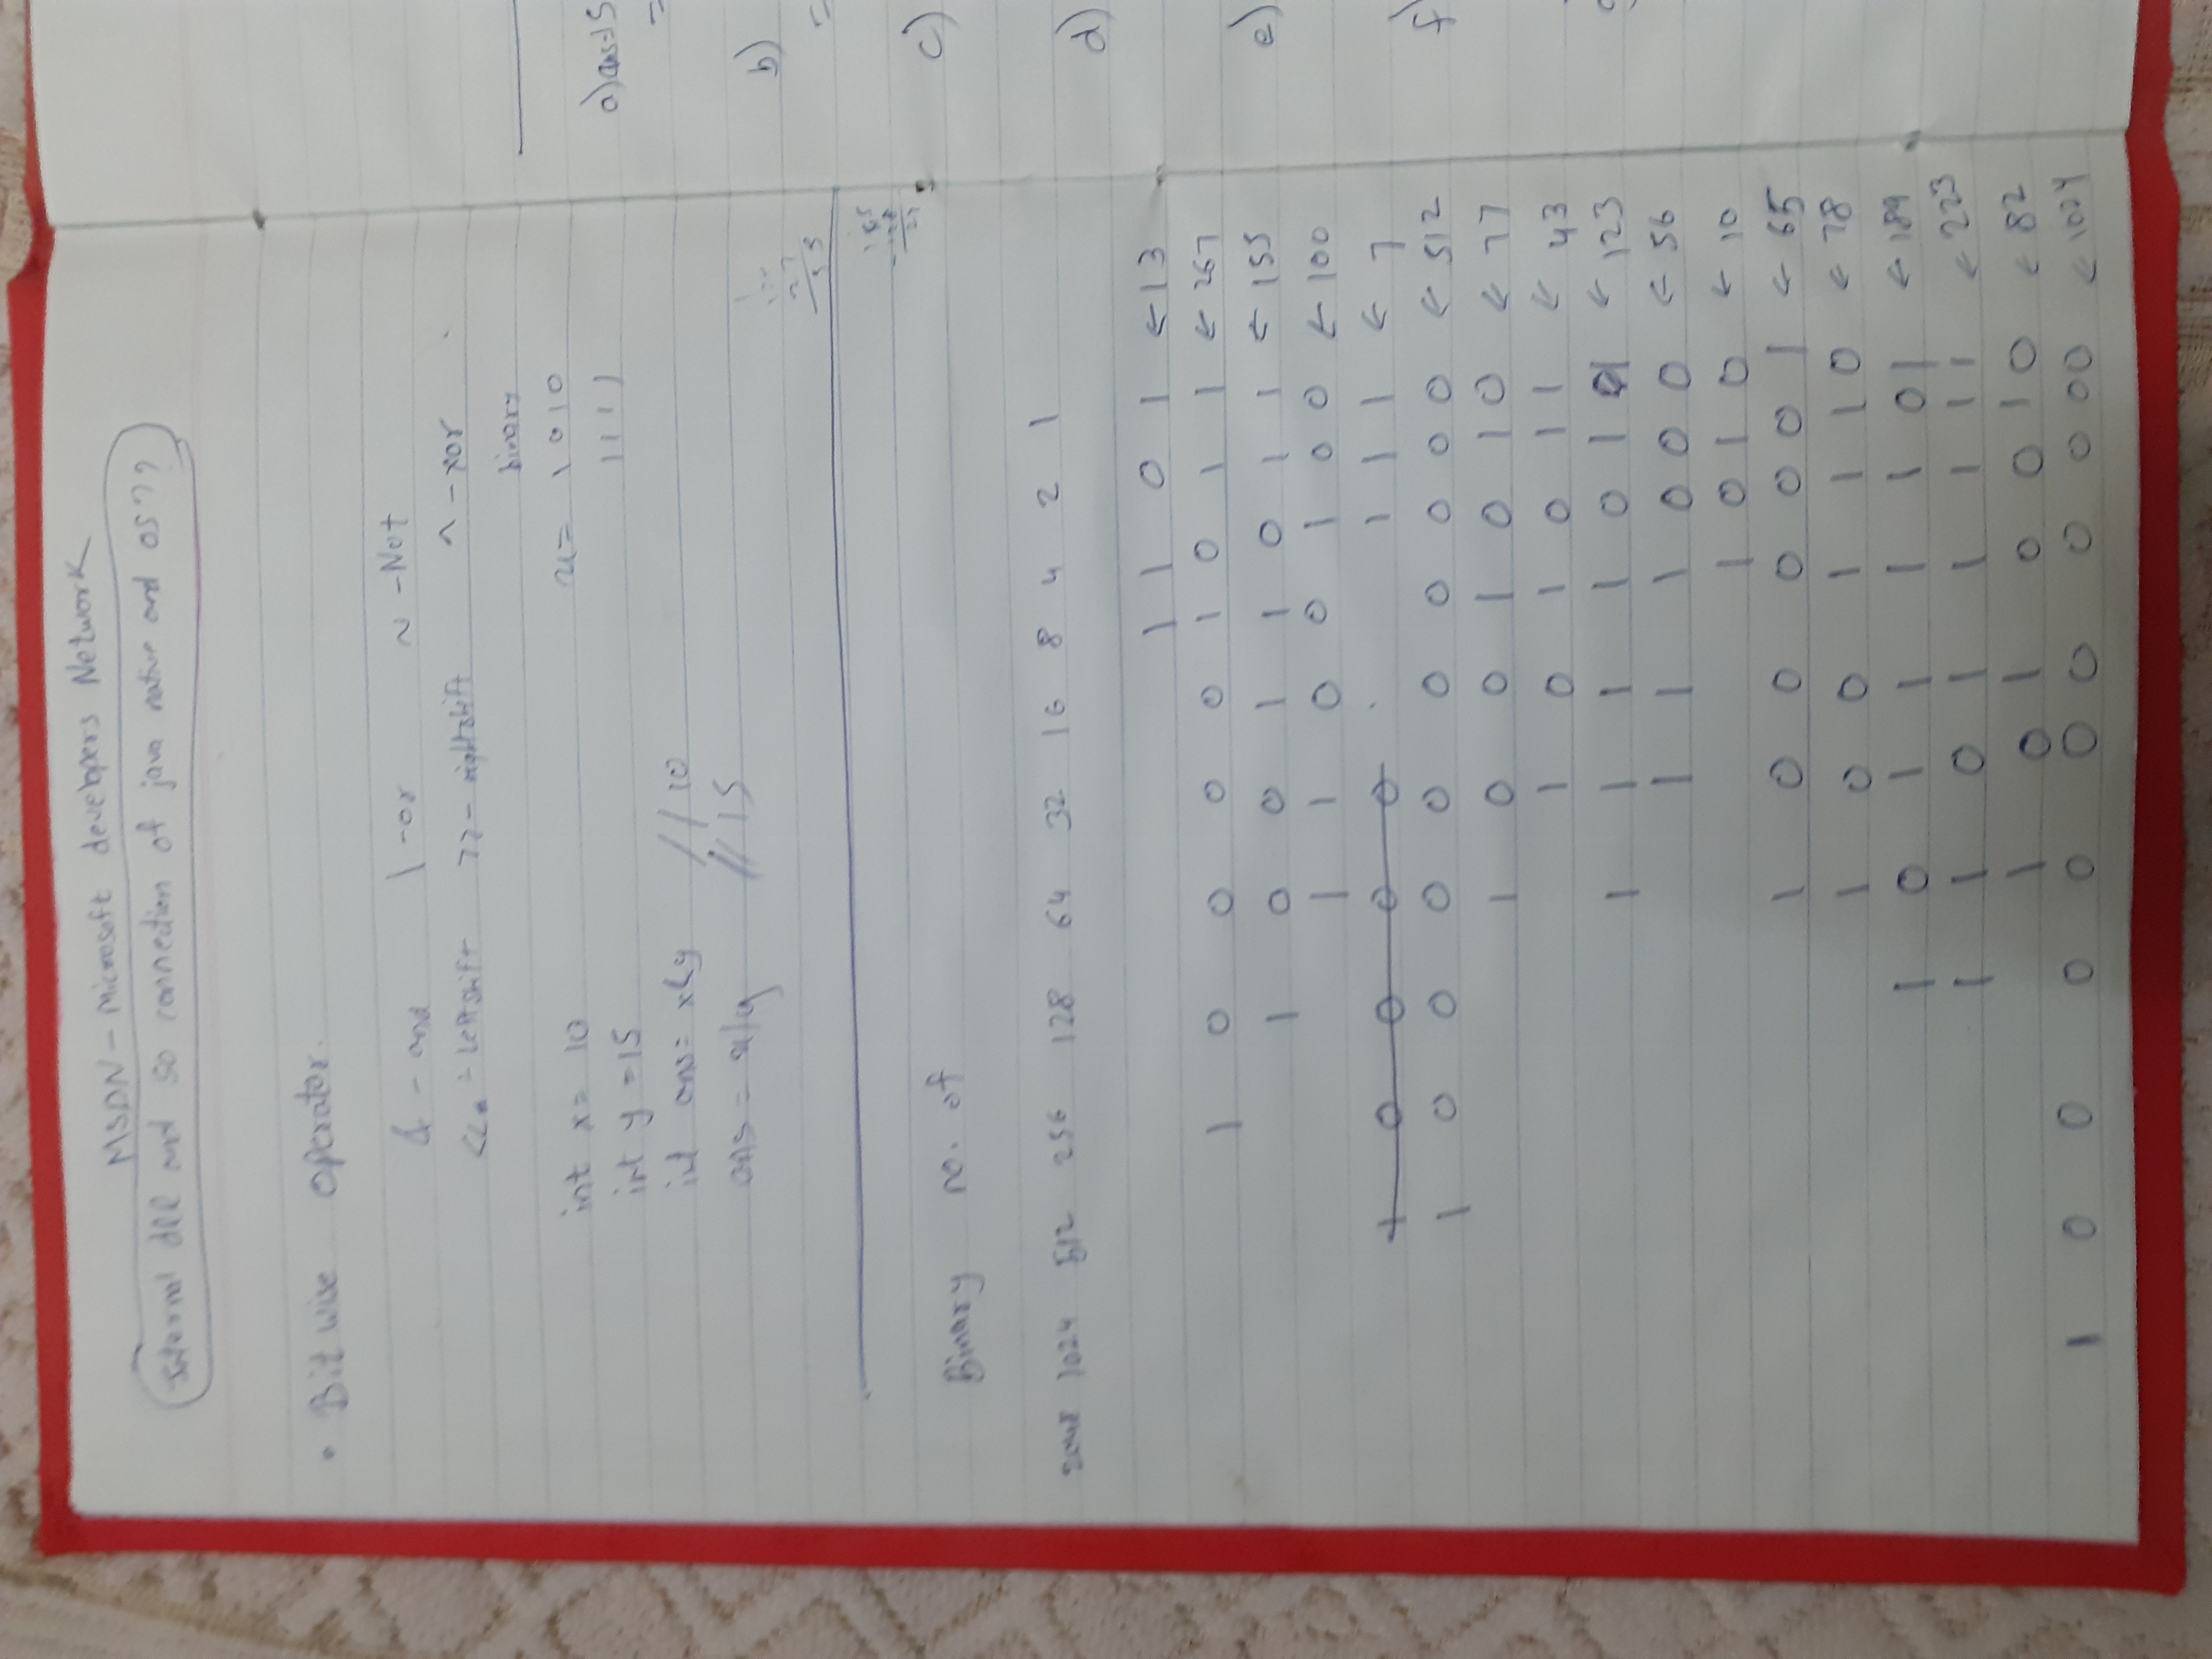 MSDN - microsoft developers Network
external dll and so connection of java native and os??
• Bit wise operator.
& - and | - or ~ - Not
<< - left shift >> - right shift ^ - xor
binary
int x = 10 x = 1010
int y = 15 1111
int ans = x&y //10
ans = x/y //15
155
Binary no. of
2048 1024 512 256 128 64 32 16 8 4 2 1
1 1 0 1 ← 13
1 0 0 0 0 1 0 1 1 ← 267
1 0 0 1 1 0 1 1 ← 155
1 1 0 0 1 0 0 ← 100
1 0 0 0 0 1 1 1 ← 7
1 0 0 0 0 0 0 0 0 0 ← 512
1 0 0 1 0 1 0 ← 77
1 0 1 0 1 1 ← 43
1 1 1 1 0 1 1 ← 123
1 1 1 0 0 0 ← 56
1 0 1 0 ← 10
1 0 0 0 0 0 1 ← 65
1 0 0 1 1 1 0 ← 78
1 0 1 1 1 1 0 1 ← 189
1 1 0 1 1 1 1 1 ← 223
1 0 1 0 0 1 0 ← 82
1 0 0 0 0 0 0 0 0 0 0 ← 1024
a) ans = 15
=
b)
=
c)
d)
e)
f)